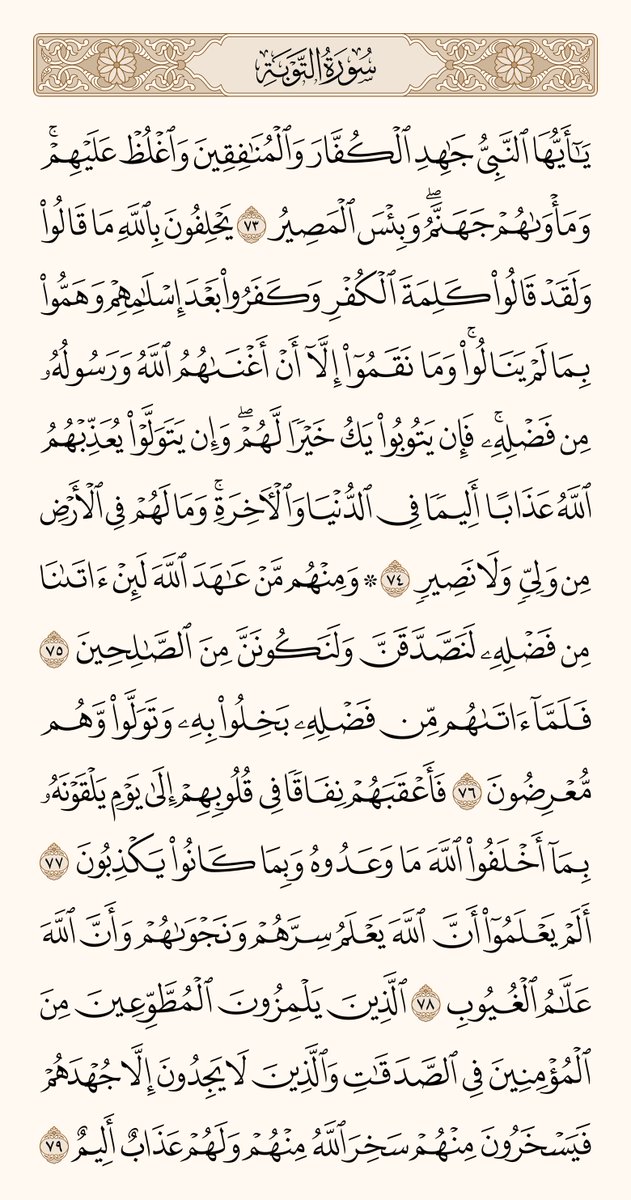 سُورَةُ التَّوۡبَةِ
يَٰٓأَيُّهَا ٱلنَّبِيُّ جَٰهِدِ ٱلۡكُفَّارَ وَٱلۡمُنَٰفِقِينَ وَٱغۡلُظۡ عَلَيۡهِمۡۚ
وَمَأۡوَىٰهُمۡ جَهَنَّمُۖ وَبِئۡسَ ٱلۡمَصِيرُ ٧٣ يَحۡلِفُونَ بِٱللَّهِ مَا قَالُواْ
وَلَقَدۡ قَالُواْ كَلِمَةَ ٱلۡكُفۡرِ وَكَفَرُواْ بَعۡدَ إِسۡلَٰمِهِمۡ وَهَمُّواْ
بِمَا لَمۡ يَنَالُواْۚ وَمَا نَقَمُوٓاْ إِلَّآ أَنۡ أَغۡنَىٰهُمُ ٱللَّهُ وَرَسُولُهُۥ
مِن فَضۡلِهِۦۚ فَإِن يَتُوبُواْ يَكُ خَيۡرٗا لَّهُمۡۖ وَإِن يَتَوَلَّوۡاْ يُعَذِّبۡهُمُ
ٱللَّهُ عَذَابًا أَلِيمٗا فِي ٱلدُّنۡيَا وَٱلۡأٓخِرَةِۚ وَمَا لَهُمۡ فِي ٱلۡأَرۡضِ
مِن وَلِيّٖ وَلَا نَصِيرٖ ٧٤ ۞ وَمِنۡهُم مَّنۡ عَٰهَدَ ٱللَّهَ لَئِنۡ ءَاتَىٰنَا
مِن فَضۡلِهِۦ لَنَصَّدَّقَنَّ وَلَنَكُونَنَّ مِنَ ٱلصَّٰلِحِينَ ٧٥
فَلَمَّآ ءَاتَىٰهُم مِّن فَضۡلِهِۦ بَخِلُواْ بِهِۦ وَتَوَلَّواْ وَّهُم
مُّعۡرِضُونَ ٧٦ فَأَعۡقَبَهُمۡ نِفَاقٗا فِي قُلُوبِهِمۡ إِلَىٰ يَوۡمِ يَلۡقَوۡنَهُۥ
بِمَآ أَخۡلَفُواْ ٱللَّهَ مَا وَعَدُوهُ وَبِمَا كَانُواْ يَكۡذِبُونَ ٧٧
أَلَمۡ يَعۡلَمُوٓاْ أَنَّ ٱللَّهَ يَعۡلَمُ سِرَّهُمۡ وَنَجۡوَىٰهُمۡ وَأَنَّ ٱللَّهَ
عَلَّٰمُ ٱلۡغُيُوبِ ٧٨ ٱلَّذِينَ يَلۡمِزُونَ ٱلۡمُطَّوِّعِينَ مِنَ
ٱلۡمُؤۡمِنِينَ فِي ٱلصَّدَقَٰتِ وَٱلَّذِينَ لَا يَجِدُونَ إِلَّا جُهۡدَهُمۡ
فَيَسۡخَرُونَ مِنۡهُمۡ سَخِرَ ٱللَّهُ مِنۡهُمۡ وَلَهُمۡ عَذَابٌ أَلِيمٌ ٧٩